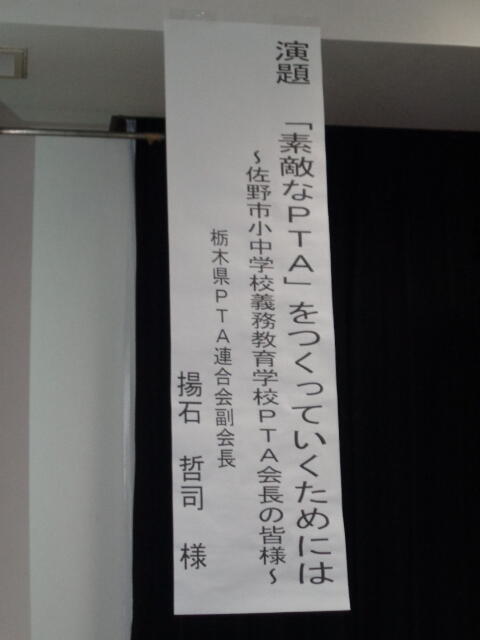 演題 「素敵なPTA」をつくっていくためには
～佐野市小中学校義務教育学校PTA会長の皆様～
栃木県PTA連合会副会長
揚石 哲司 様